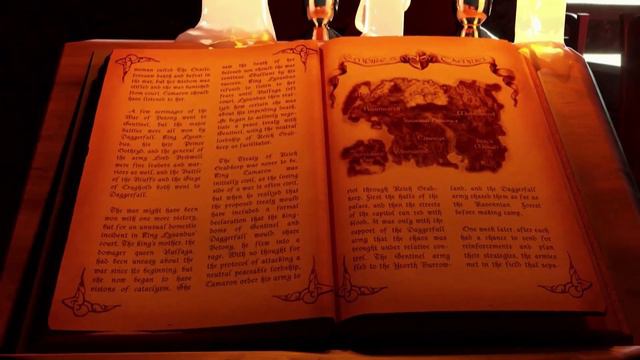 woman called The Oracle
foresaw death and defeat in
the war, but her wisdom was
and she was banished
from court. Camaron should
have listened to her.
A few scrimages of the
War of Betony went to
Sentinel, but the major
battles were all won by
Daggerfall. King Lysan-
dus, his heir Prince
Gothryd, and the general of
the army Lord Bridwell
were fine leaders and war-
riors as well, and the Battle
of the Bluffs and the Siege
of Craghold both went to
Daggerfall.
The War might have been
won with one more victory,
but for an unusual domestic
incident in King Lysandus
court. The king's mother, the
dowager queen Nulfaga,
had been uneasy about the
war since its beginning, but
she now began to have
visions of cataclysm. She
saw the death of her
beloved son should the war
continue
King Lysandus
refused to listen to her
fears until Nulfaga left
court. Lysandus then real-
about the impending death.
He began to actively nego-
tiate a peace treaty with
Sentinel, using the neutral
lordship of Reich Grad-
kepp as facilitator.
The Treaty of Reich
Gradkepp was never to be.
King Camaron was
initially civil, as the losing
side of a war is often civil,
but when he realized that
the proposed treaty would
have included a formal
declaration that the king-
doms of Sentinel and
Daggerfall would share
Betony, he flew into a
rage. With no thought for
the protocol of attacking a
neutral peaceable lordship,
Camaron order his army to
riot through Reich Grad-
kepp. First the halls of the
palace, and then the streets
of the capital ran red with
blood. It was only with the
support of the Daggerfall
army that the chaos was
brought under relative con-
trol. The Sentinel army
fled to the Yeorth Burrow-
land, and the Daggerfall
army chased them as far as
the Ravennian Forest
before making camp.
One week later, after each
had a chance to send for
reinforcements and plan
their strategies, the armies
met in the field that sepa-